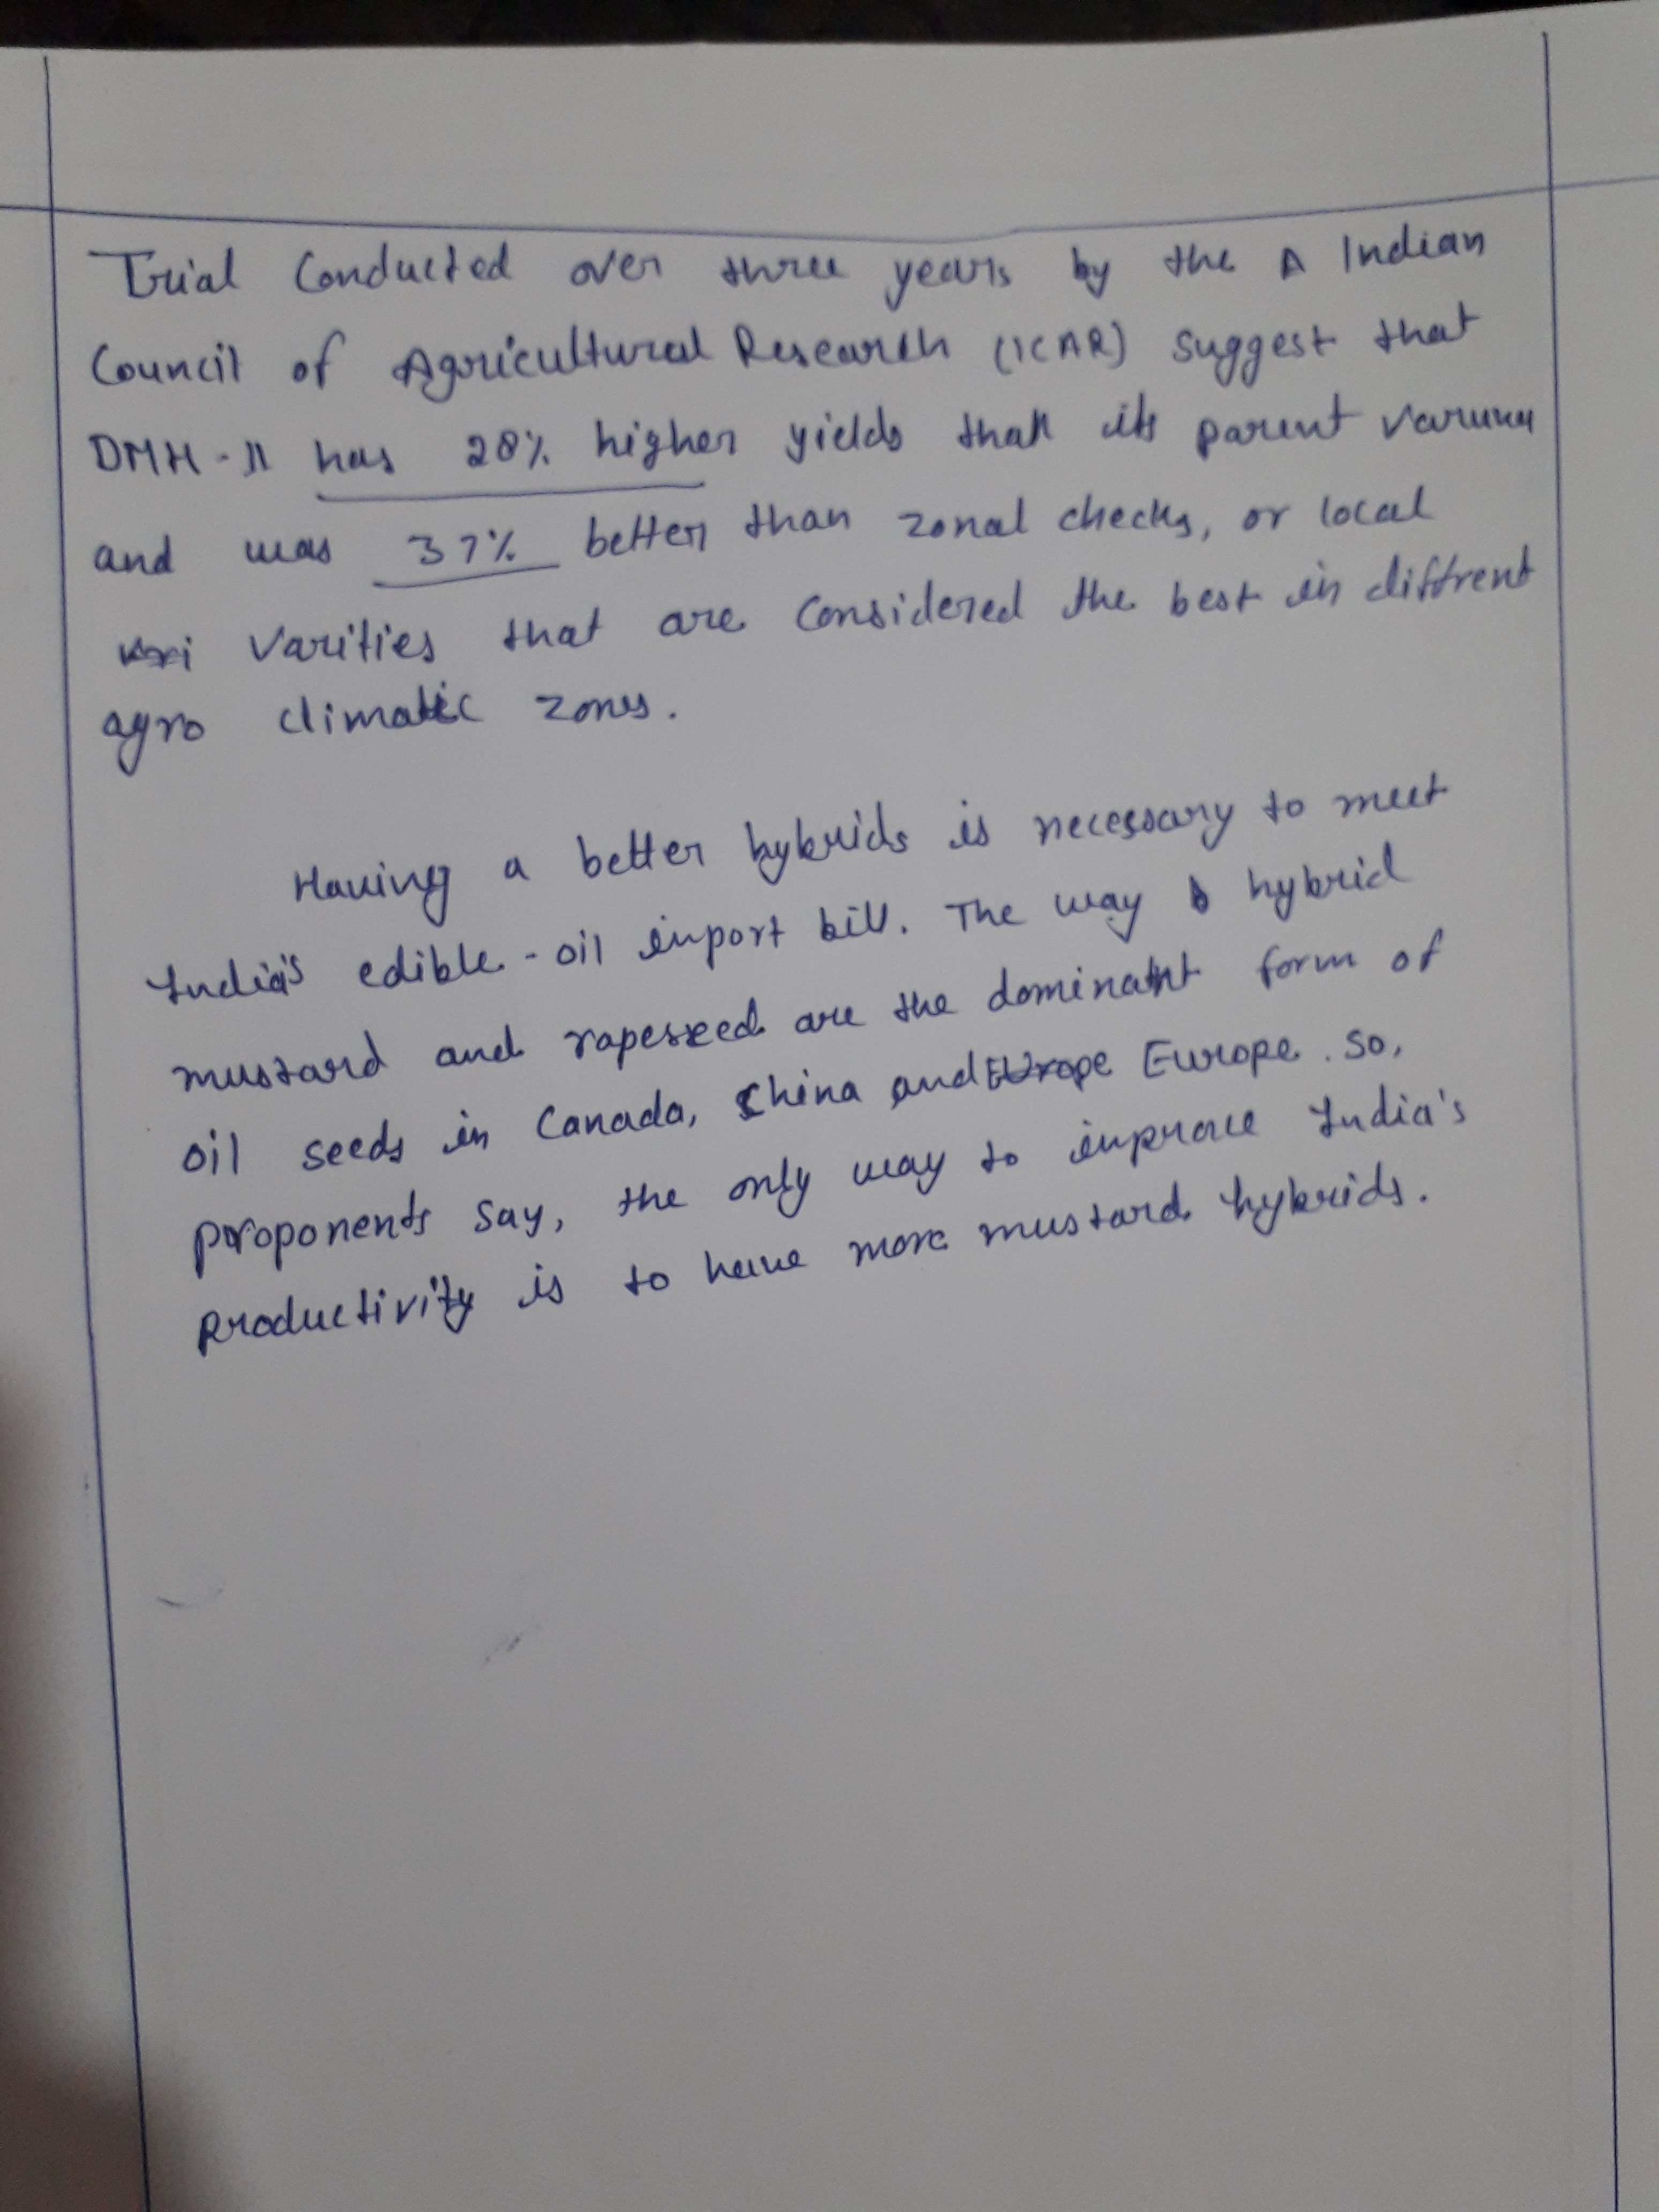 Trial Conducted over three years by the A Indian
Council of Agricultural Research (ICAR) suggest that
DMH-11 has 28% higher yields than its parent Varuna
and was 37% better than zonal checks, or local
vari varities that are considered the best in diffrent
agro climatic zones.
Having a better hybrids is necessary to meet
India's edible-oil import bill. The way hybrid
mustard and rapeseed are the dominant form of
oil seeds in Canada, China and Europe Europe. So,
proponents say, the only way to improve India's
productivity is to have more mustard hybrids.